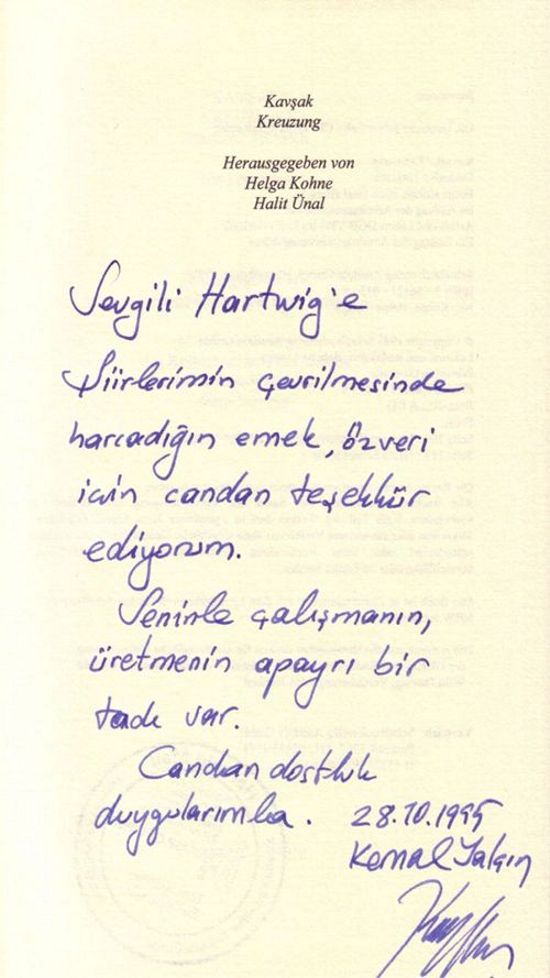 Kavşak
Kreuzung
Herausgegeben von
Helga Kohne
Halit Ünal
Sevgili Hartwig'e
Şiirlerimin çevrilmesinde
harcadığın emek, özveri
için candan teşekkür
ediyorum.
Seninle çalışmanın,
üretmenin apayrı bir
tadı var.
Candan dostluk
duygularımla. 28.10.1995
Kemal Yalçın